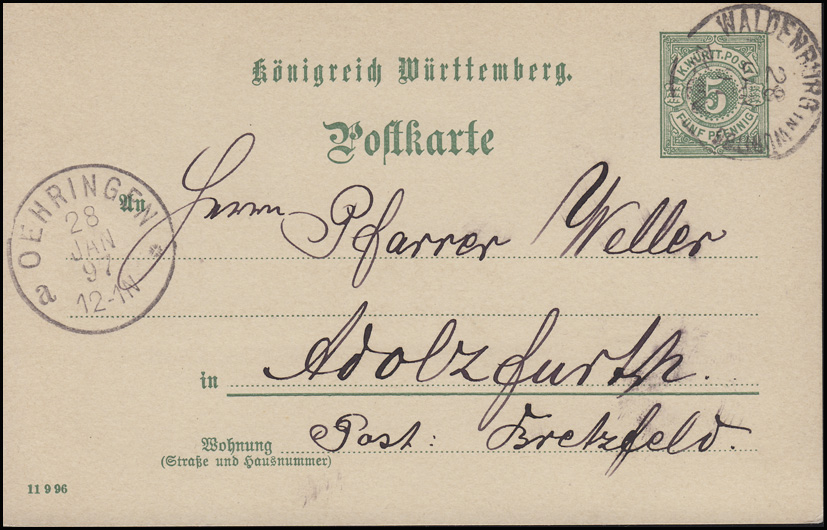 Königreich Württemberg.
Postkarte
K. WÜRTT. POST
5
FÜNF PFENNIG
WALDENBURG IN WÜRTT
28
OEHRINGEN
28
JAN
97
12-1N
a
An
Herrn Pfarrer Weller
in
Adolzfurth.
Post: Bretzfeld.
Wohnung
(Straße und Hausnummer)
11 9 96